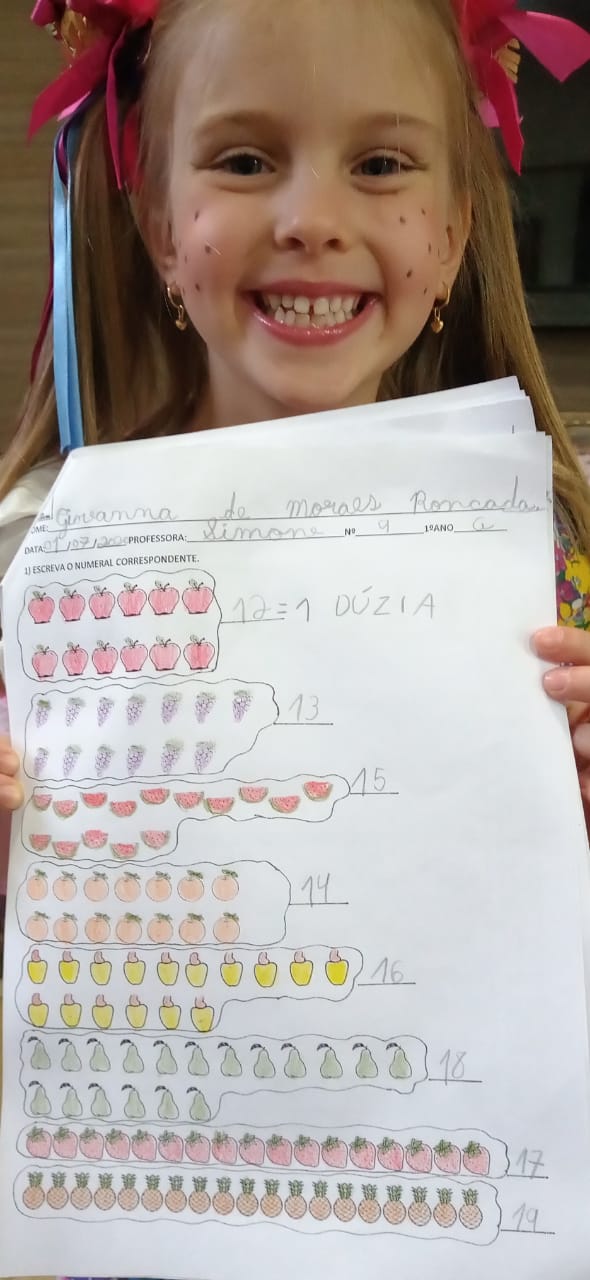 OME: Giovanna de Moraes Roncada
DATA: 01/07/2020 PROFESSORA: Simone Nº 9 1ºANO a
1) ESCREVA O NUMERAL CORRESPONDENTE.
12=1 DÚZIA
13
15
14
16
18
17
19